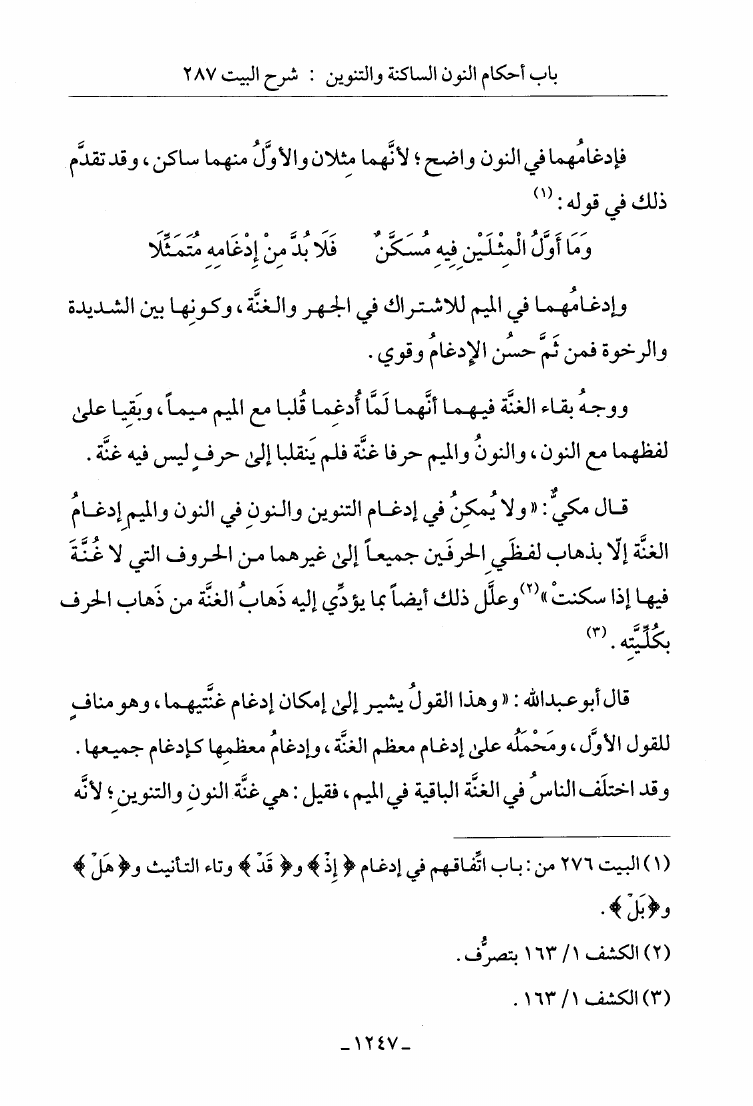 باب أحكام النون الساكنة والتنوين : شرح البيت ٢٨٧
فإدغامُهما في النون واضح؛ لأنَّهما مِثلان والأوَّلُ منهما ساكن، وقد تقدَّم
ذلك في قوله: (١)
وَمَا أَوَّلُ الْمِثْلَيْنِ فِيهِ مُسَكَّنٌ فَلَا بُدَّ مِنْ إِدْغَامِهِ مُتَمَثِّلَا
وإدغامُهما في الميم للاشتراك في الجهر والغنَّة، وكونِها بين الشديدة
والرخوة فمن ثَمَّ حسُن الإدغامُ وقوي.
ووجهُ بقاء الغنَّة فيهما أنَّهما لَمَّا أُدغما قُلبا مع الميم ميماً، وبَقِيا علىٰ
لفظهما مع النون، والنونُ والميم حرفا غنَّة فلم يَنقلبا إلىٰ حرفٍ ليس فيه غنَّة.
قال مكيٌّ: «ولا يُمكنُ في إدغام التنوين والنونِ في النون والميمِ إدغامُ
الغنَّة إلّا بذهاب لفظَيِ الحرفَين جميعاً إلىٰ غيرهما من الحروف التي لا غُنَّةَ
فيها إذا سكنتْ»(٢) وعلَّل ذلك أيضاً بما يؤدِّي إليه ذَهابُ الغنَّة من ذَهاب الحرف
بكلِّيَّتِه. (٣)
قال أبو عبدالله: «وهذا القولُ يشير إلىٰ إمكان إدغام غنَّتيهما، وهو منافٍ
للقول الأوَّل، ومَحْمَلُه علىٰ إدغام معظم الغنَّة، وإدغامُ معظمِها كإدغام جميعها.
وقد اختلَف الناسُ في الغنَّة الباقية في الميم، فقيل: هي غنَّة النونِ والتنوينِ؛ لأنَّه
(١) البيت ٢٧٦ من: باب اتِّفاقهم في إدغام ﴿إِذْ﴾ و﴿قَدْ﴾ وتاء التأنيث و﴿هَلْ﴾
و﴿بَلْ﴾.
(٢) الكشف ١/ ١٦٣ بتصرُّف.
(٣) الكشف ١/ ١٦٣.
ـ ١٢٤٧ ـ